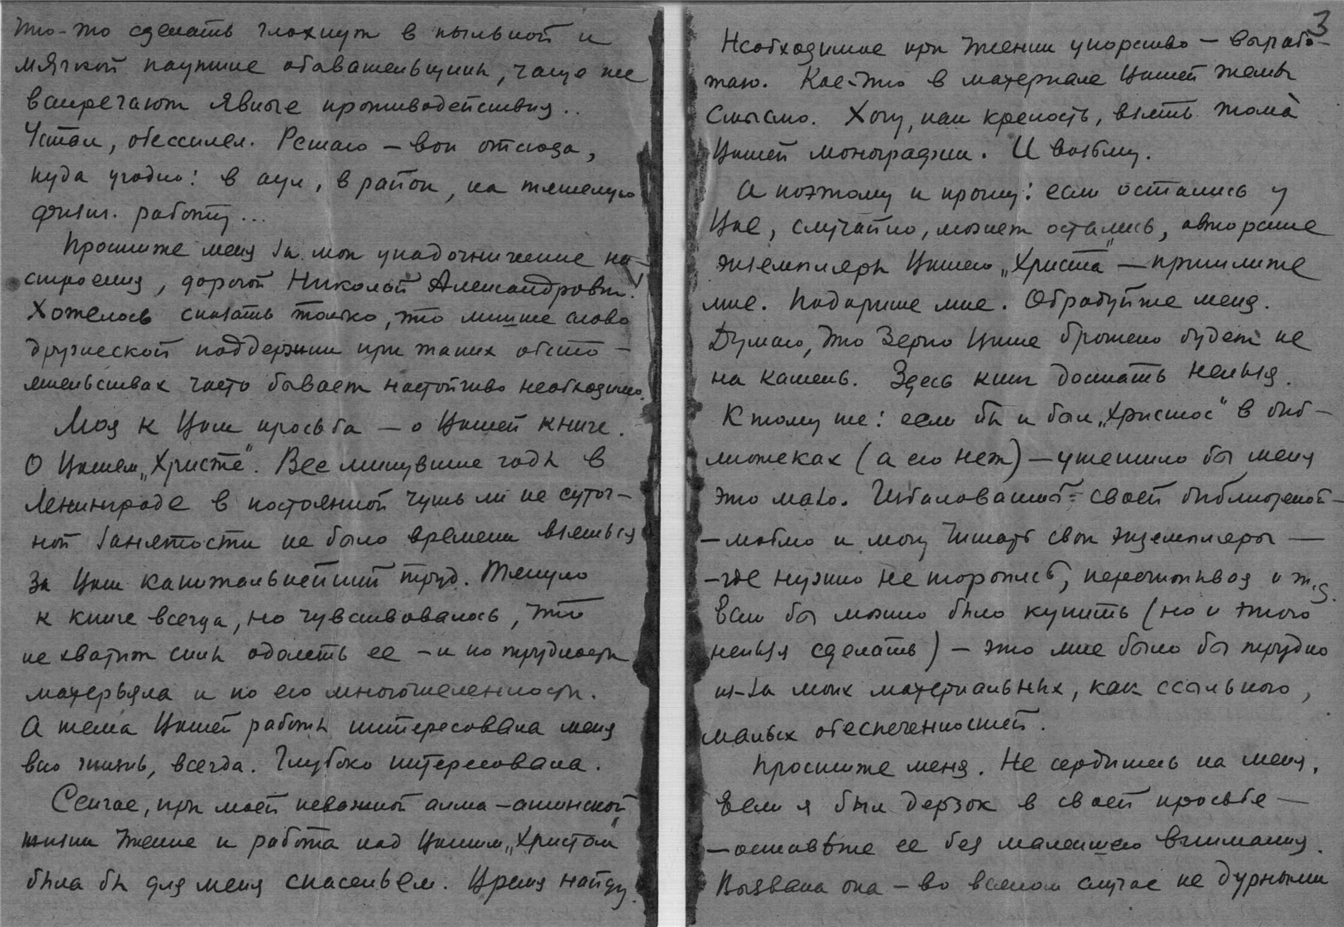 что-то сделать глохнут в пыльной и
мягкой паутине обывательщины, чаще же
встречают явные противодействия..
Устал, обессилел. Решаю — вон отсюда,
куда угодно: в аул, в район, на тяжелую
физич. работу...
Простите меня за мои упадочнические на-
строения, дорогой Николай Александрович.
Хотелось сказать только, что лишнее слово
дружеской поддержки при таких обсто-
ятельствах часто бывает настойчиво необходимо.
Моя к Вам просьба — о Вашей книге.
О Вашем „Христе". Все минувшие годы в
Ленинграде в постоянной чуть ли не суточ-
ной занятости не было времени взяться
за Ваш капитальнейший труд. Тянуло
к книге всегда, но чувствовалось, что
не хватит силы одолеть ее — и по трудности
матерьяла и по его многочисленности.
А тема Вашей работы интересовала меня
всю жизнь, всегда. Глубоко интересовала.
Сейчас, при моей неважной алма-атинской
жизни чтение и работа над Вашим „Христом"
была бы для меня спасеньем. Время найду.
3
Необходимое при чтении упорство — вырабо-
таю. Кое-что в материале Вашей темы
смыслю. Хочу, как крепость, взять тома
Вашей монографии. И возьму.
А поэтому и прошу: если остались у
Вас, случайно, может остались, авторские
экземпляры Вашего „Христа" — пришлите
мне. Подарите мне. Обрадуйте меня.
Думаю, что зерно Ваше брошено будет не
на камень. Здесь книг достать нельзя.
К тому же: если бы и был „Христос" в биб-
лиотеках (а его нет) — утешило бы меня
это мало. Избалованный своей библиотекой —
— люблю и могу читать свои экземпляры —
— где нужно не торопясь, перечитывая и т.д.
Если бы можно было купить (но и этого
нельзя сделать) — это мне было бы трудно
из-за моих материальных, как ссыльного,
малых обеспеченностей.
Простите меня. Не сердитесь на меня,
если я был дерзок в своей просьбе —
— оставьте ее без малейшего внимания.
Вызвана она — во всяком случае не дурными